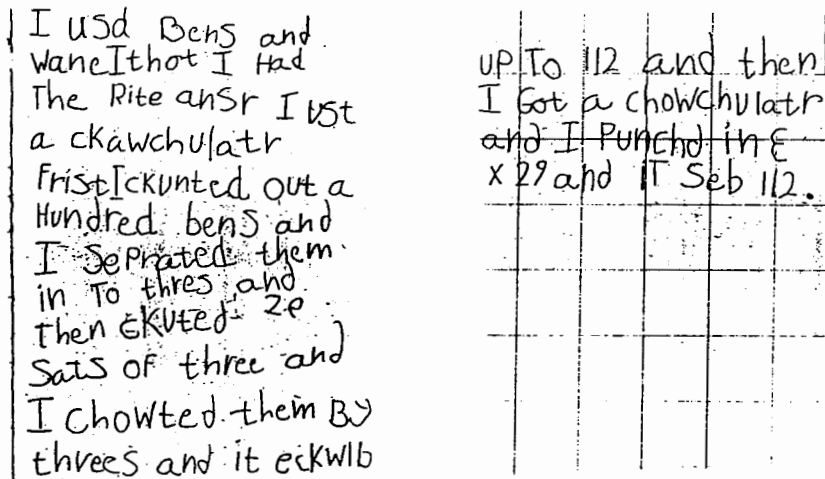 I usd Bens and
wane I thot I Had
The Rite ansr I ust
a ckawchulatr
frist I ckunted out a
Hundred bens and
I seprated them
in To thres and
then ckuted 29
sats of three and
I chowted them By
threes and it eckwlb
up To 112 and then
I Got a chowchulatr
and I Punchd in 3
x 29 and IT Seb 112.